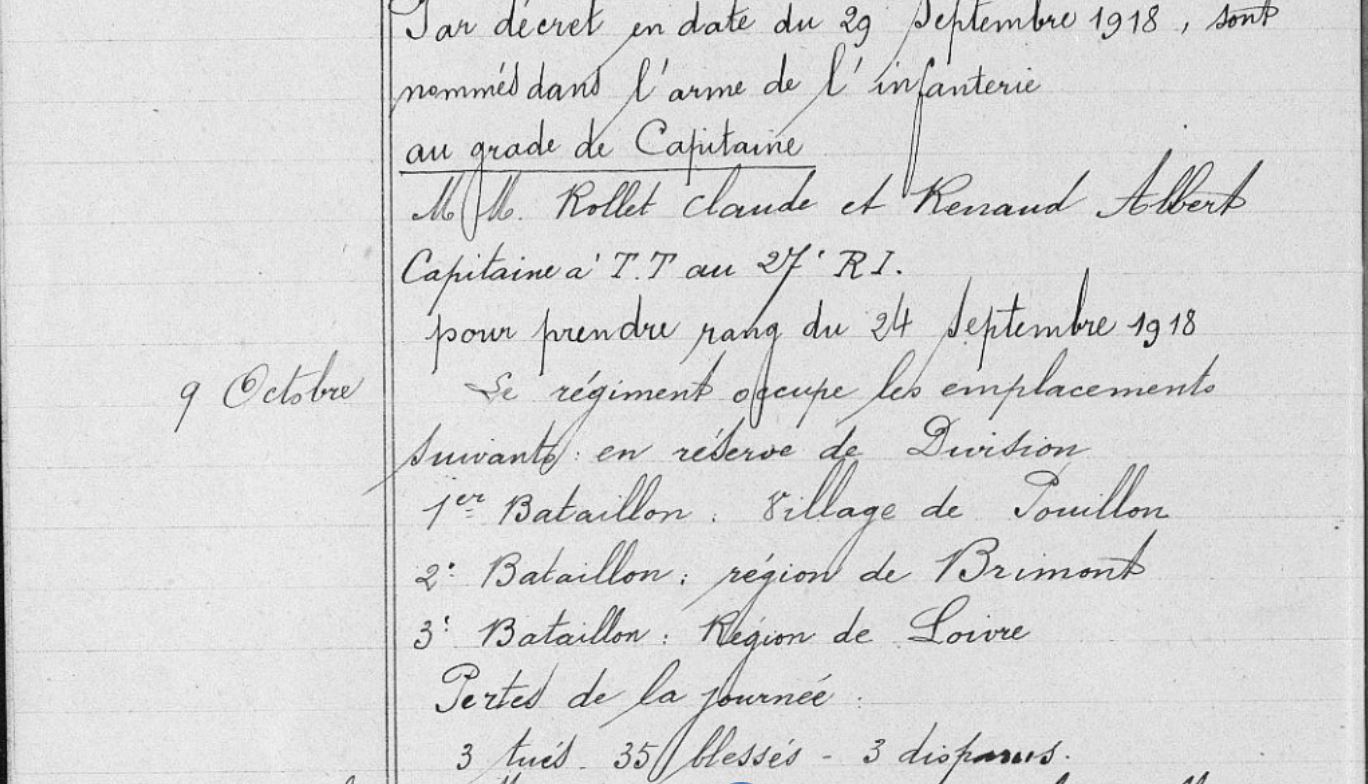 Par décret en date du 29 Septembre 1918, sont
nommés dans l'arme de l'infanterie
au grade de Capitaine
M M. Rollet Claude et Renaud Albert
Capitaine à T.T au 27e RI.
pour prendre rang du 24 Septembre 1918
9 Octobre
Le régiment occupe les emplacements
suivants : en réserve de Division
1er Bataillon : Village de Pouillon
2e Bataillon : région de Brimont
3e Bataillon : Région de Loivre
Pertes de la journée :
3 tués - 35 blessés - 3 disparus.